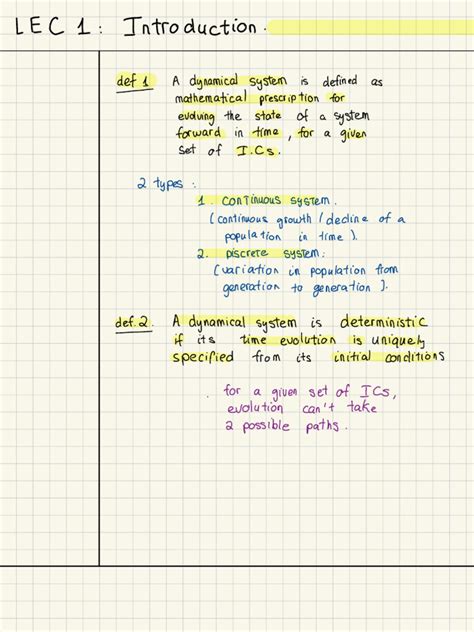 LEC 1: Introduction.
def 1 A dynamical system is defined as
mathematical prescription for
evolving the state of a system
forward in time, for a given
set of I.Cs.
2 types:
1. continuous system.
(continuous growth / decline of a
population in time).
2. Discrete system:
(variation in population from
generation to generation).
def.2. A dynamical system is deterministic
if its time evolution is uniquely
specified from its initial conditions
. for a given set of ICs,
evolution can't take
2 possible paths.